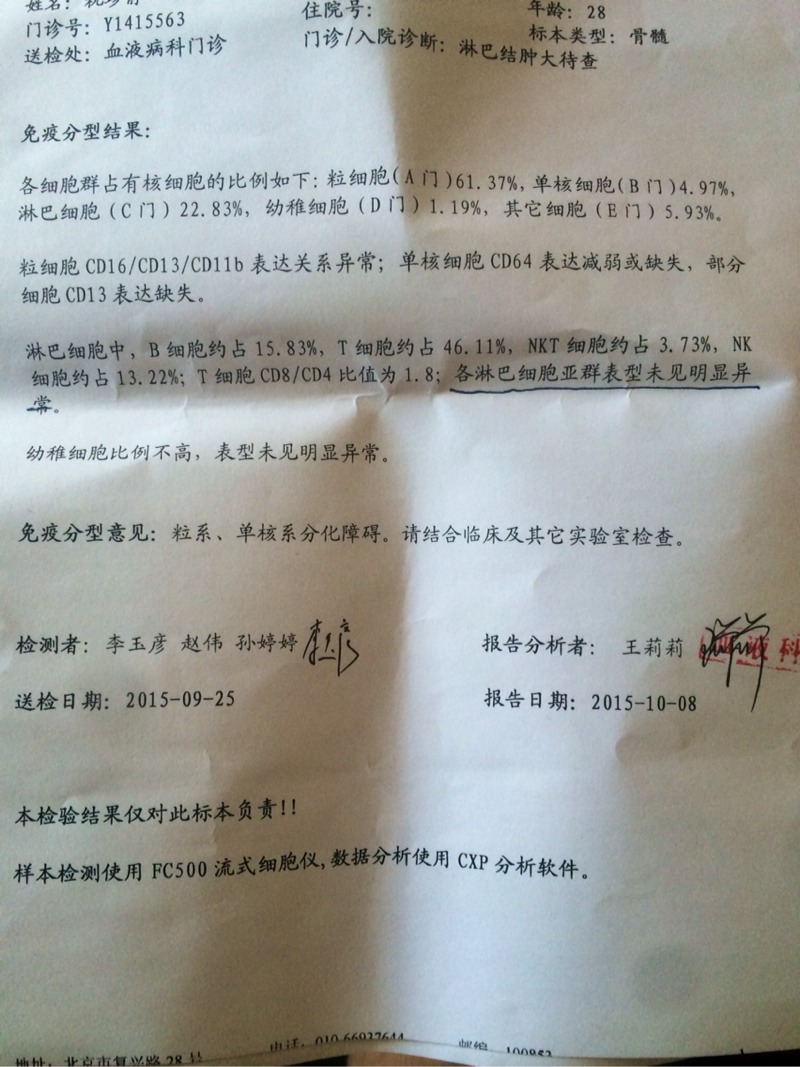 姓名：
住院号：
年龄：28
门诊号：Y1415563
门诊/入院诊断：淋巴结肿大待查
标本类型：骨髓
送检处：血液病科门诊
免疫分型结果：
各细胞群占有核细胞的比例如下：粒细胞(A 门)61.37%，单核细胞(B 门)4.97%，
淋巴细胞（C 门）22.83%，幼稚细胞（D 门）1.19%，其它细胞（E 门）5.93%。
粒细胞 CD16/CD13/CD11b 表达关系异常；单核细胞 CD64 表达减弱或缺失，部分
细胞 CD13 表达缺失。
淋巴细胞中，B 细胞约占 15.83%，T 细胞约占 46.11%，NKT 细胞约占 3.73%，NK
细胞约占 13.22%；T 细胞 CD8/CD4 比值为 1.8；各淋巴细胞亚群表型未见明显异
常。
幼稚细胞比例不高，表型未见明显异常。
免疫分型意见：粒系、单核系分化障碍。请结合临床及其它实验室检查。
检测者：李玉彦 赵伟 孙婷婷
报告分析者：王莉莉
送检日期：2015-09-25
报告日期：2015-10-08
本检验结果仅对此标本负责!!
样本检测使用 FC500 流式细胞仪,数据分析使用 CXP 分析软件。
地址：北京市复兴路 28 号
电话：010-66937644
邮编 100853